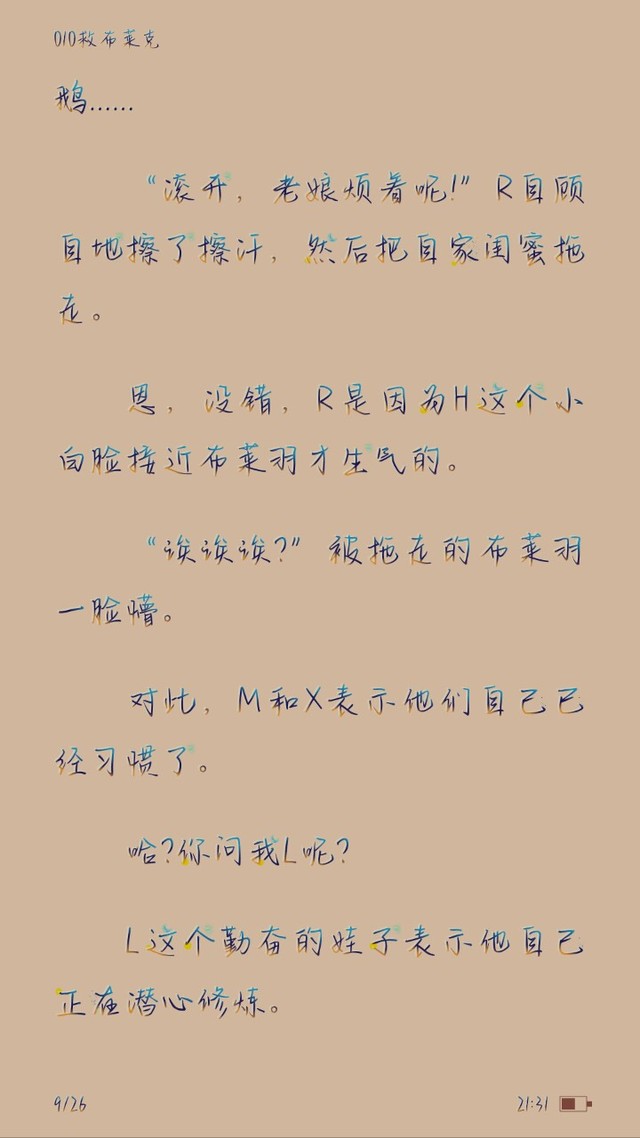 010救布莱克
鹅……
“滚开，老娘烦着呢!”R自顾
自地擦了擦汗，然后把自家闺蜜拖
走。
恩，没错，R是因为H这个小
白脸接近布莱羽才生气的。
“诶诶诶?”被拖走的布莱羽
一脸懵。
对此，M和X表示他们自己已
经习惯了。
哈?你问我L呢?
L这个勤奋的娃子表示他自己
正在潜心修炼。
9/26
21:31